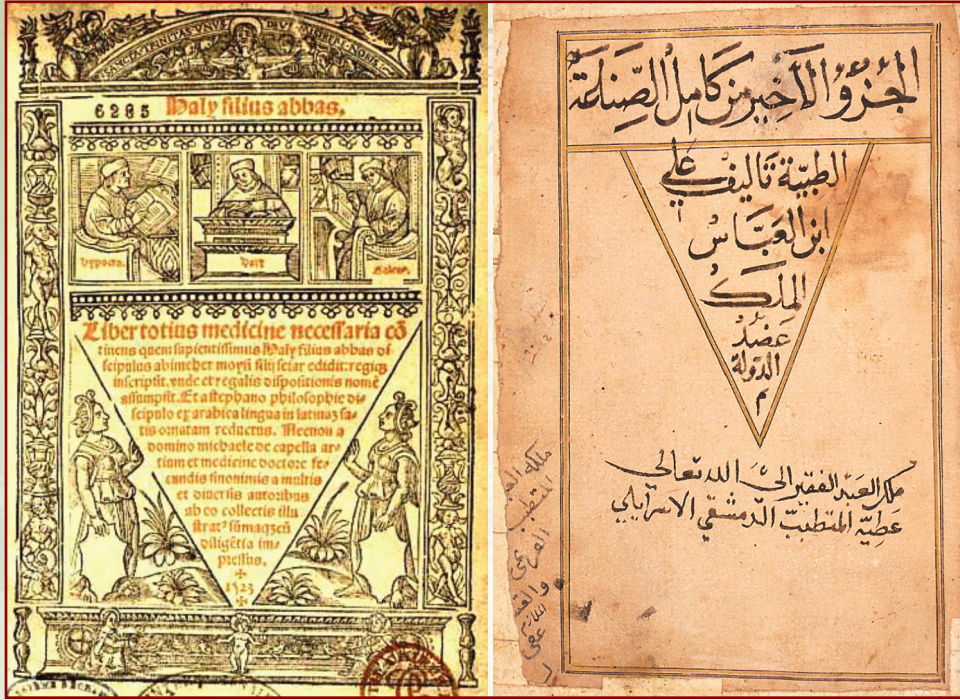 SANCTA TRINITAS UNUS DEUS MISERERE NOBIS
6285
Haly filius abbas.
Hypocra.
Haly
Galenus.
Liber totius medicine necessaria cō
tinens quem sapientissimus Haly filius abbas di
scipulus abimeher moysi filij seiar edidit: regiq3
inscripsit. vnde et regalis dispositionis nomē
assumpsit. Et a stephano philosophie di-
scipulo ex arabica lingua in latinaz sa-
tis ornatam reductus. Necnon a
domino michaele de capella ar-
tium et medicine doctore fe-
cundis sinonimis a multis
et diuersis autoribus
ab eo collectis illu
stratꝰ sūmaq3 cū
diligētia im-
pressus.
1523
الجزؤ الأخير من كامل الصناعة
الطبية تأليف علي
ابن العباس
الملك
عضد
الدولة
م
ملك العبد الفقير الى الله تعالى
عطية المتطبب الدمشقي الاسرايلي